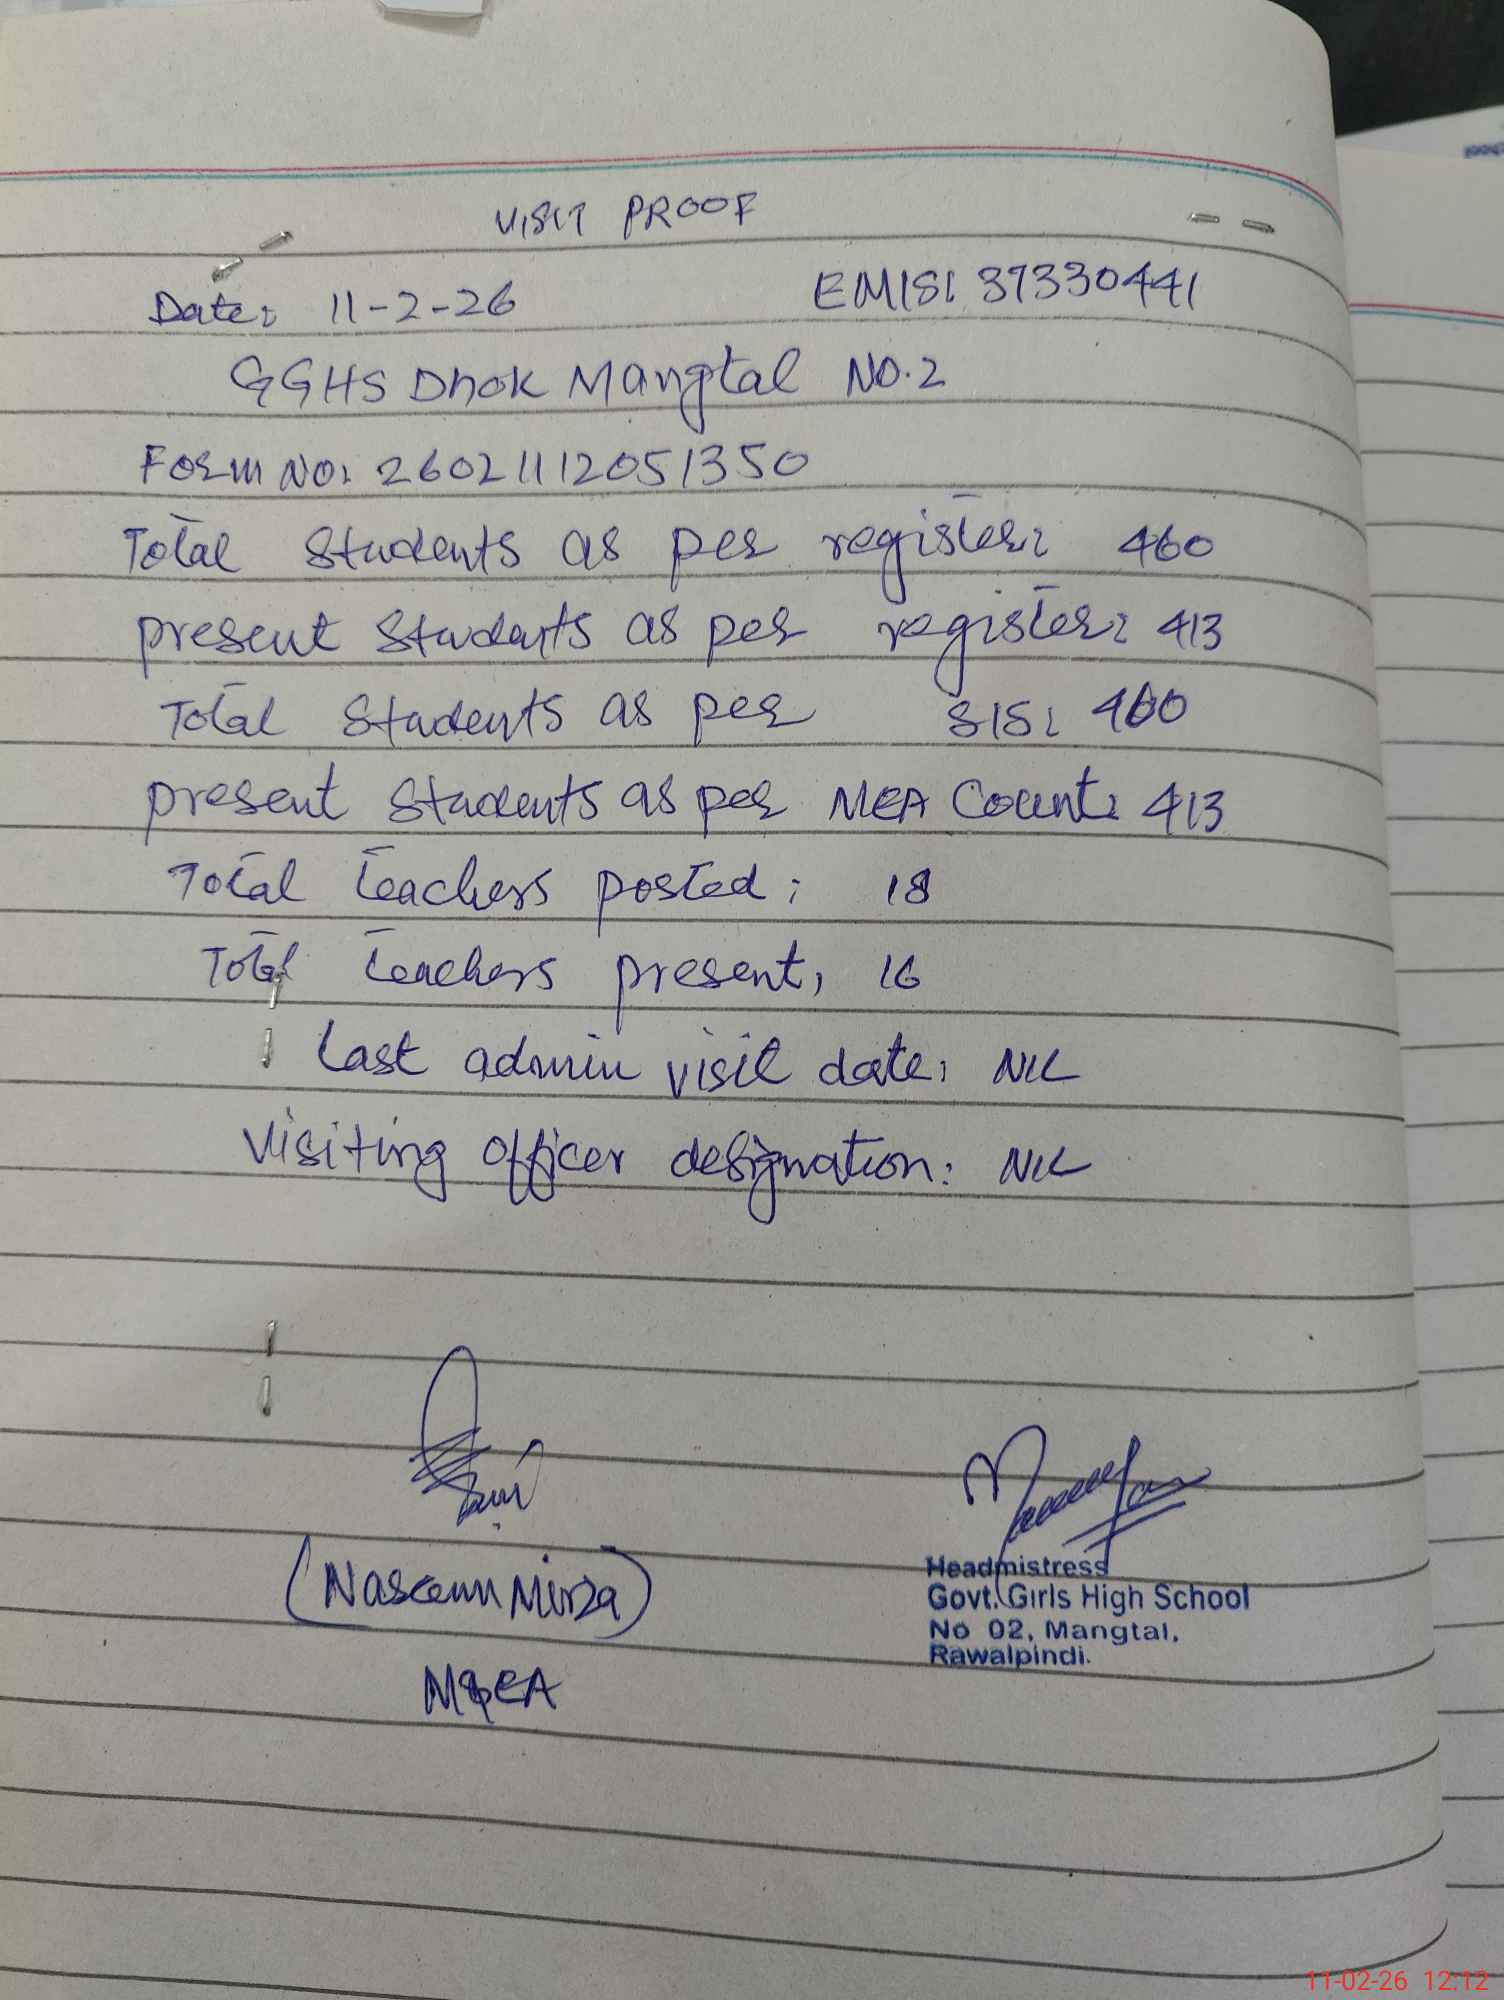 VISIT PROOF
Date: 11-2-26 EMIS: 37330441
GGHS Dhok Mangtal NO.2
Form NO: 260211112051350
Total students as per register: 460
present students as per register: 413
Total students as per SIS: 460
present students as per MEA Count: 413
Total teachers posted: 18
Total teachers present: 16
Last admin visit date: NIL
Visiting officer designation: NIL
(Naseem Mirza)
MEA
Headmistress
Govt. Girls High School
No 02, Mangtal,
Rawalpindi.
11-02-26 12:12